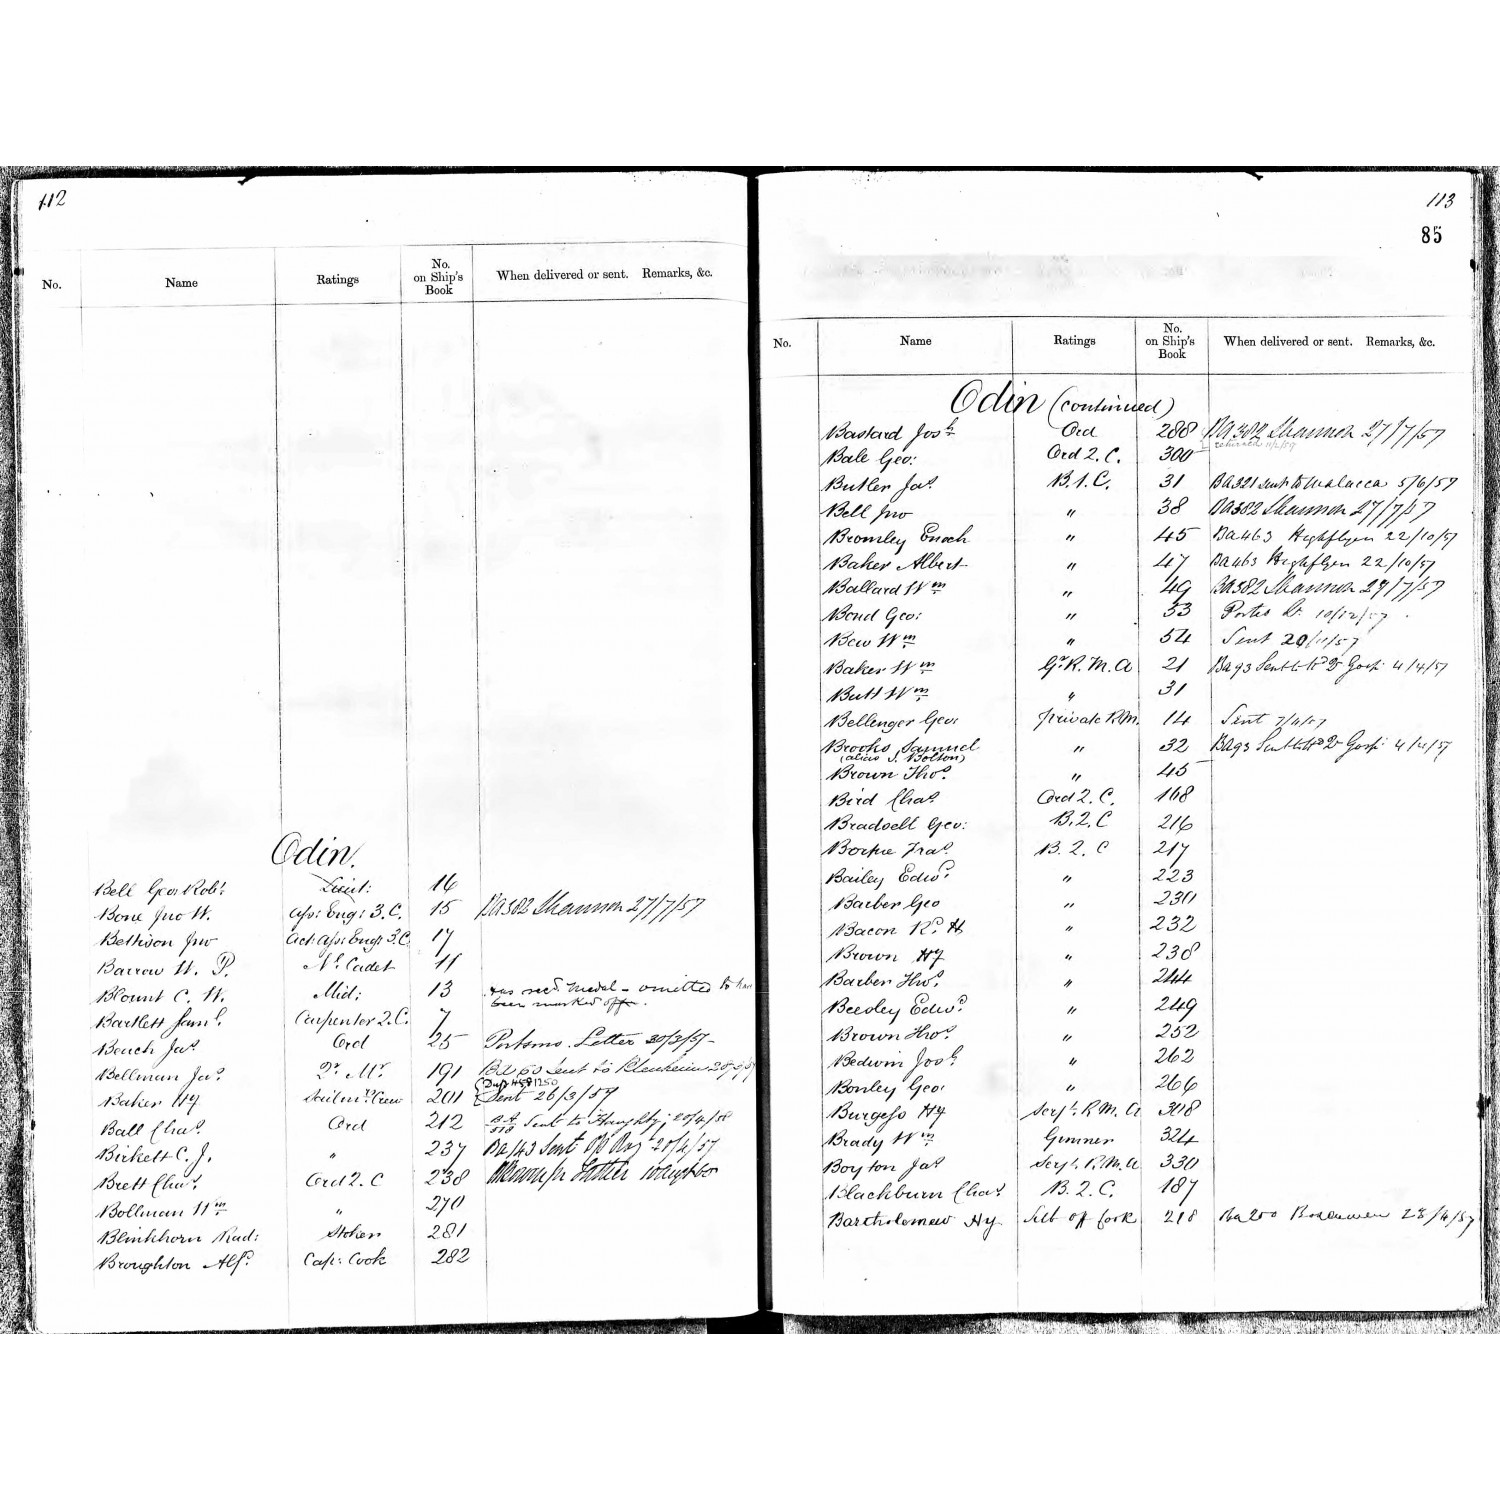 112
No. Name Ratings No. on Ship's Book When delivered or sent. Remarks, &c.
Odin.
Bell Geo Robt Lieut: 16
Bone Jno W. Ass: Engr 3.C. 15 Ba 382 Shannon 27/7/57
Bettison Jno Act: Ass: Engr 3.C. 17
Barrow W. P. Nl Cadet 11
Blount C. W. Mid: 13 has recd medal – omitted to have
been marked off.
Bartlett Saml Carpenter 2.C. 7
Beach Jas Ord 25 Portsmo. Letter 30/3/57
Bellman Jas 191 sent to Blenheim
Baker Hy Sailmrs Crew 201 Sent 26/3/59
Ball Chas Ord 212 Sent to Haughty; 20/4/58
Birkett C. J. " 237 Ba 143 Sent
Brett Chas Ord 2.C 238
Bollman Wm " 270
Blinkhorn Rad: Stoker 281
Broughton Alfd Cap: Cook 282
113
85
No. Name Ratings No. on Ship's Book When delivered or sent. Remarks, &c.
Odin (continued)
Bastard Josh Ord 288 Ba 382 Shannon 27/7/57
returned
Bale Geo: Ord 2.C. 300
Butler Jas B.1.C. 31 Ba 321 sent to Malacca 5/6/57
Bell Jno " 38 Ba 382 Shannon 27/7/57
Bromley Enoch " 45 Ba 463 Highflyer 22/10/57
Baker Albert " 47 Ba 463 Highflyer 22/10/57
Ballard Wm " 49 Ba 382 Shannon 27/7/57
Bond Geo: " 53 10/12/57
Bew Wm " 54 Sent 20/11/57
Baker Wm Gr R.M.A 21 Ba 93 Sent 4/4/57
Butt Wm " 31
Bellenger Geo: private R.M. 14 Sent 7/4/57
Brooks Samuel " 32 Ba 93 Sent 4/4/57
(alias S. Bolton)
Brown Thos " 45
Bird Chas Ord 2.C. 168
Bradsell Geo: B.2.C 216
Fras B.2.C 217
Bailey Edwd " 223
Barber Geo " 230
Bacon Rd H " 232
Brown Hy " 238
Barber Thos " 244
Beesley Edwd " 249
Brown Thos " 252
Bedwin Josh " 262
Bonley Geo: " 266
Burgess Hy Serjt R.M.A 308
Brady Wm Gunner 324
Boyton Jas Serjt R.M.A 330
Blackburn Chas B.2.C. 187
Bartholemew Hy 218 Ba 200 Boscawen 28/4/57